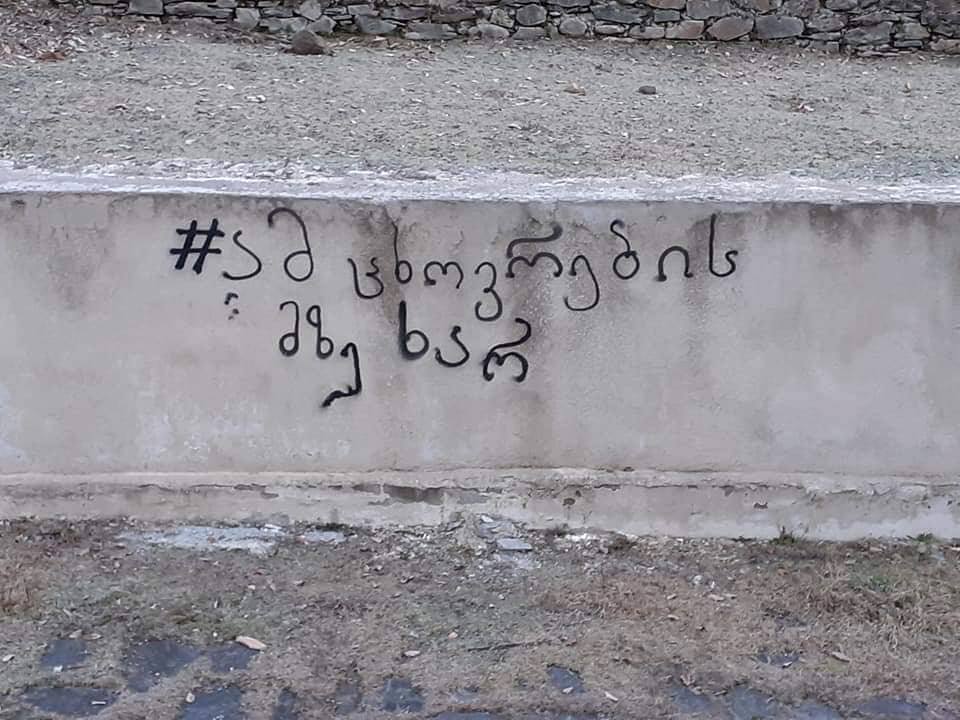 #ამ ცხოვრების
მზე ხარ